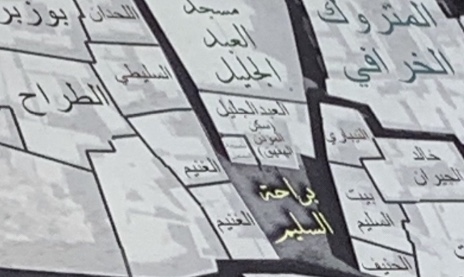 بوزبر
اللحدان
مسجد
العبد
الجليل
المتروك
الخرافي
السليطي
الطراح
العبدالجليل
النيباري
خالد
الغنيم
براحة
السليم
بيت
السليم
الغنيم
الحنيف